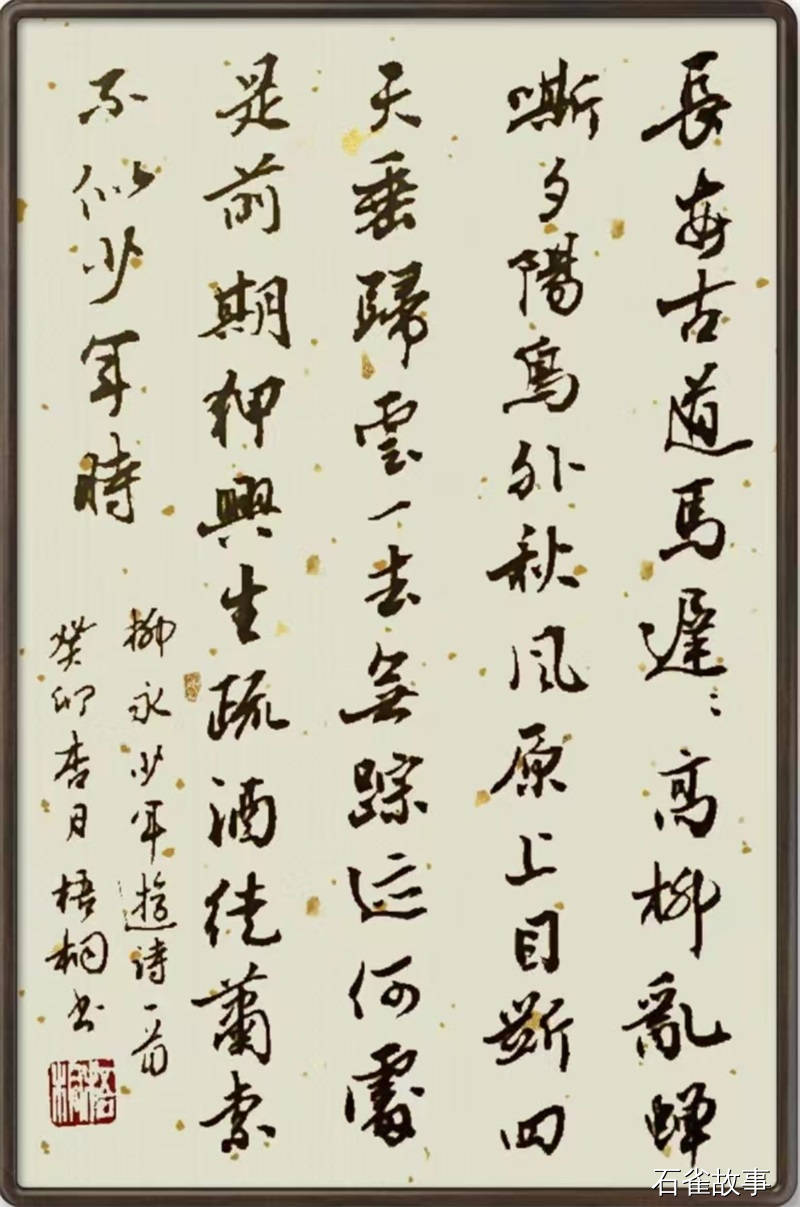 長安古道馬遲〻高柳亂蟬
嘶夕陽鳥外秋風原上目斷四
天垂歸雲一去無踪迹何處
是前期狎興生疏酒徒蕭索
不似少年時
柳永少年遊詩一首
癸卯杏月梧桐书
梧桐
石雀故事